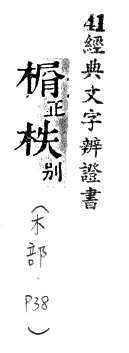 41經典文字辨證書
榍正柣别
(木部 P38)